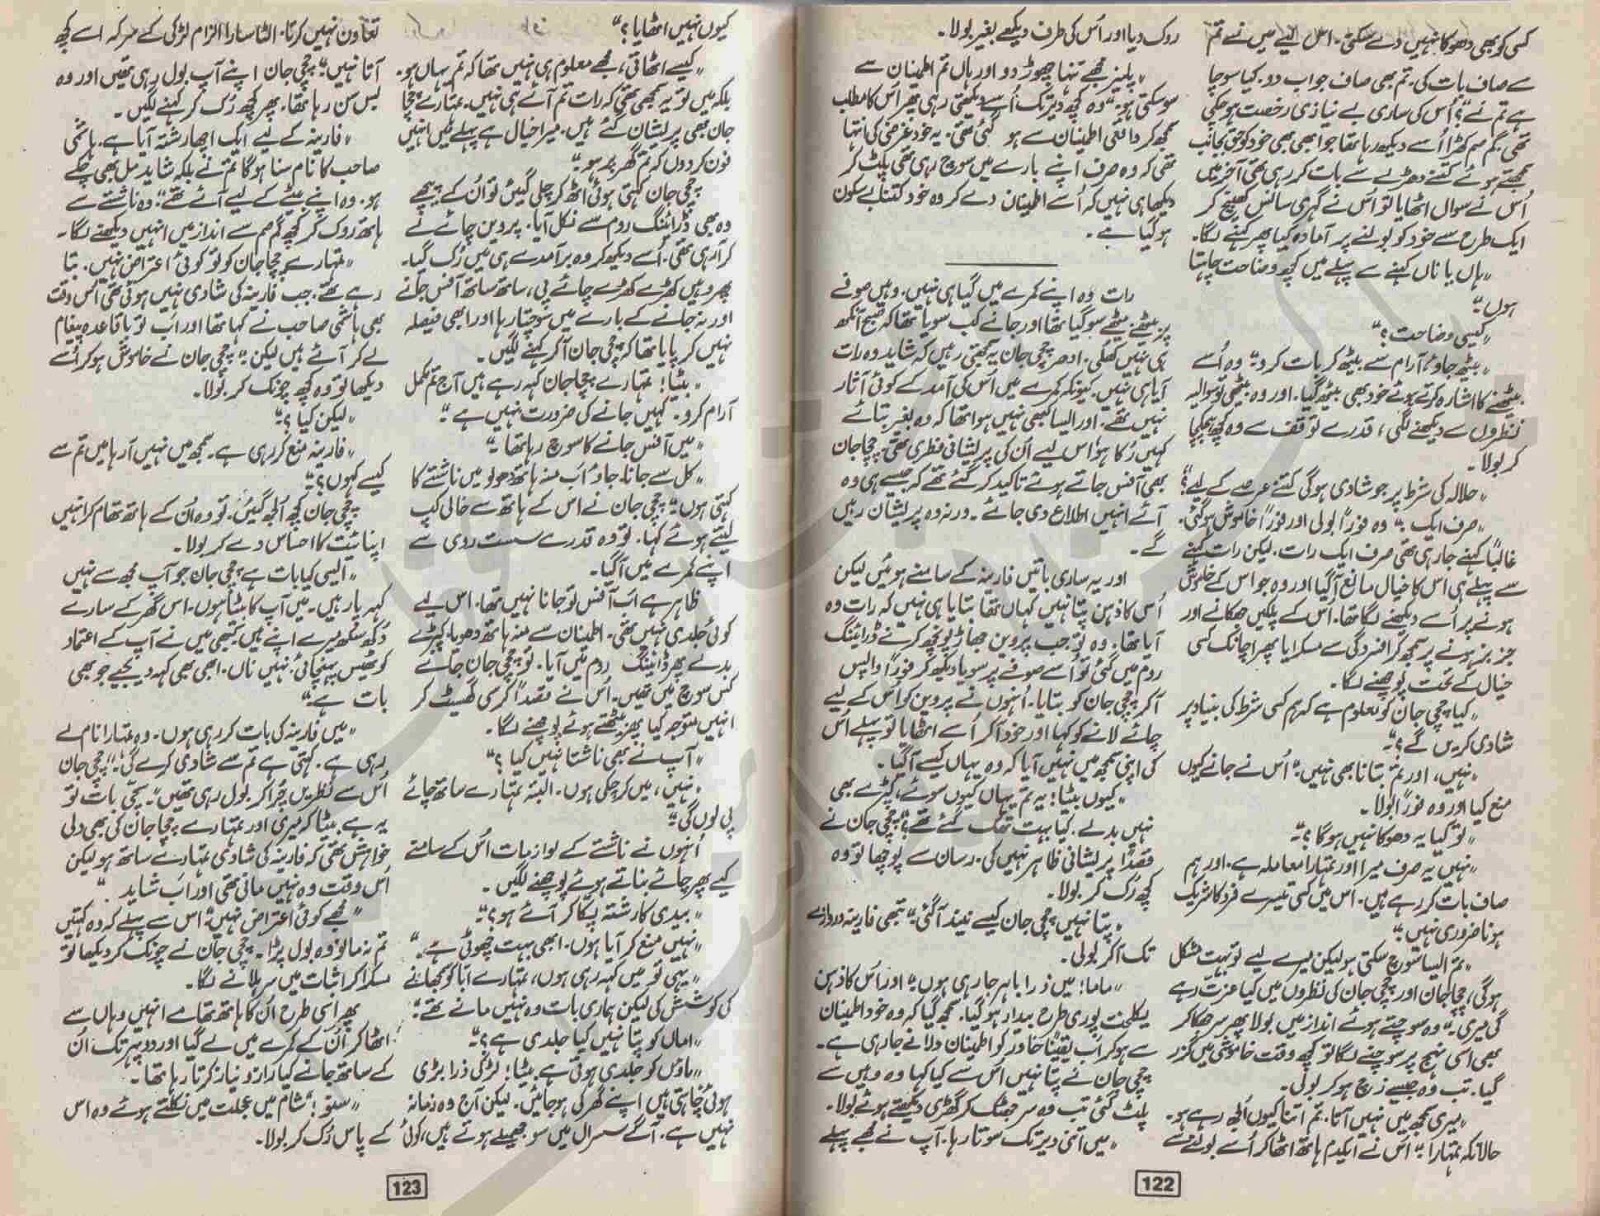 کسی کو بھی دھوکا نہیں دے سکتی۔ اس لیے میں نے تم
سے صاف بات کی۔ تم بھی صاف جواب دو۔ کیا سوچا
ہے تم نے؟“ اُس کی ساری بے نیازی رخصت ہو چکی
تھی۔ گم سم کھڑا اُسے دیکھ رہا تھا جو ابھی بھی خود کو حق بجانب
سمجھتے ہوئے کتنے دھڑلے سے بات کر رہی تھی۔ آخر میں
اُس نے سوال اٹھایا تو اس نے گہری سانس کھینچ کر
ایک طرح سے خود کو بولنے پر آمادہ کیا پھر کہنے لگا۔
”ہاں یا ناں کہنے سے پہلے میں کچھ وضاحت چاہتا
ہوں“
”کیسی وضاحت؟“
”بیٹھ جاؤ، آرام سے بیٹھ کر بات کرو“ وہ اُسے
بیٹھنے کا اشارہ کرتے ہوئے خود بھی بیٹھ گیا۔ اور وہ بیٹھی تو سوالیہ
نظروں سے دیکھنے لگی، قدرے توقف سے وہ کچھ ہچکچا
کر بولا۔
”حلالہ کی شرط پر جو شادی ہو گی کتنے عرصے کے لیے؟“
”صرف ایک“ وہ فوراً بولی اور فوراً خاموش ہو گئی۔
غالباً کہنے جا رہی تھی صرف ایک رات۔ لیکن رات کہنے
سے پہلے ہی اس کا خیال مانع آگیا اور وہ جو اس کے خاموش
ہونے پر اُسے دیکھنے لگا تھا۔ اس کے پلکیں جھکانے اور
جزبز ہونے پر سمجھ کر افسردگی سے مسکرایا پھر اچانک کسی
خیال کے تحت پوچھنے لگا۔
”کیا چچی جان کو معلوم ہے کہ ہم کس شرط کی بنیاد پر
شادی کریں گے؟“
”نہیں، اور تم بتانا بھی نہیں“ اُس نے جانے کیوں
منع کیا اور وہ فوراً بولا۔
”تو کیا یہ دھوکا نہیں ہو گا؟“
”نہیں یہ صرف میرا اور تمہارا معاملہ ہے۔ اور ہم
صاف بات کر رہے ہیں۔ اس میں کسی تیسرے فرد کا شریک
ہونا ضروری نہیں“
”تم ایسا سوچ سکتی ہو لیکن میرے لیے تو بہت مشکل
ہو گی، چچا جان اور چچی جان کی نظروں میں کیا عزت رہے
گی میری“ وہ سوچتے ہوئے انداز میں بولا پھر سر جھکا کر
بھی اسی نہج پر سوچنے لگا تو کچھ وقت خاموشی میں گزر
گیا۔ تب وہ جیسے زچ ہو کر بولی۔
”میری سمجھ میں نہیں آتا۔ تم اتنا کیوں اُلجھ رہے ہو۔
حالانکہ تمہارا“ اُس نے ایکدم ہاتھ اٹھا کر اُسے بولنے سے
روک دیا اور اُس کی طرف دیکھے بغیر بولا۔
”پلیز مجھے تنہا چھوڑ دو اور ہاں تم اطمینان سے
سو سکتی ہو“ وہ کچھ دیر تک اُسے دیکھتی رہی پھر اس کا مطلب
سمجھ کر واقعی اطمینان سے ہو گئی تھی۔ یہ خود غرضی کی انتہا
تھی کہ وہ صرف اپنے بارے میں سوچ رہی تھی پلٹ کر
دیکھا ہی نہیں کہ اُسے اطمینان دے کر وہ خود کتنا بے سکون
ہو گیا ہے۔
رات وہ اپنے کمرے میں گیا ہی نہیں۔ وہیں صوفے
پر بیٹھے بیٹھے سو گیا تھا اور جانے کب سویا تھا کہ صبح آنکھ
ہی نہیں کھلی۔ ادھر چچی جان یہ سمجھتی رہیں کہ شاید وہ رات
آیا ہی نہیں۔ کیونکہ کمرے میں اُس کی آمد کے کوئی آثار
نہیں تھے۔ اور ایسا کبھی نہیں ہوا تھا کہ وہ بغیر بتائے
کہیں رُکا ہو، اس لیے اُن کی پریشانی فطری تھی۔ چچا جان
بھی آفس جاتے ہوئے تاکید کر گئے تھے کہ جیسے ہی وہ
آئے انہیں اطلاع دی جائے۔ ورنہ وہ پریشان رہیں
گے۔
اور یہ ساری باتیں فارینہ کے سامنے ہوئیں لیکن
اُس کا ذہن پتا نہیں کہاں تھا بتایا ہی نہیں کہ رات وہ
آیا تھا۔ وہ تو جب پروین جھاڑ پونچھ کرنے ڈرائنگ
روم میں گئی تو اُسے صوفے پر سویا دیکھ کر فوراً واپس
آکر چچی جان کو بتایا۔ اُنہوں نے پروین کو اس کے لیے
چائے لانے کو کہا اور خود آکر اُسے اٹھایا تو پہلے اُس
کی اپنی سمجھ میں نہیں آیا کہ وہ یہاں کیسے آگیا۔
”کیوں بیٹا! یہ تم یہاں کیوں سوئے، کپڑے بھی
نہیں بدلے۔ کیا بہت تھک گئے تھے؟“ چچی جان نے
قصداً پریشانی ظاہر نہیں کی۔ رسان سے پوچھا تو وہ
کچھ رُک کر بولا۔
”پتا نہیں چچی جان کیسے نیند آگئی“ تبھی فارینہ دروازے
تک آکر بولی۔
”ماما! میں ذرا باہر جا رہی ہوں“ اور اُس کا ذہن
یکلخت پوری طرح بیدار ہو گیا۔ سمجھ گیا کہ وہ خود اطمینان
سے ہو کر اب یقیناً خاور کو اطمینان دلانے جا رہی ہے۔
چچی جان نے پتا نہیں اُس سے کیا کہا وہ وہیں سے
پلٹ گئی تب وہ سر جھٹک کر گھڑی دیکھتے ہوئے بولا۔
”میں اتنی دیر تک سوتا رہا۔ آپ نے مجھے پہلے
122
کیوں نہیں اٹھایا؟“
”کیسے اٹھاتی، مجھے معلوم ہی نہیں تھا کہ تم یہاں ہو۔
بلکہ میں تو یہ سمجھی تھی کہ رات تم آئے ہی نہیں۔ تمہارے چچا
جان بھی پریشان گئے ہیں۔ میرا خیال ہے پہلے میں انہیں
فون کر دوں کہ تم گھر پر ہو“
چچی جان کہتی ہوئی اٹھ کر چلی گئیں تو اُن کے پیچھے
وہ بھی ڈرائنگ روم سے نکل آیا۔ پروین چائے لے
کر آرہی تھی۔ اُسے دیکھ کر وہ برآمدے ہی میں رُک گیا۔
پھر وہیں کھڑے کھڑے چائے پی، ساتھ ساتھ آفس جانے
اور نہ جانے کے بارے میں سوچتا رہا اور ابھی فیصلہ
نہیں کر پایا تھا کہ چچی جان آکر کہنے لگیں۔
”بیٹا! تمہارے چچا جان کہہ رہے ہیں آج تم مکمل
آرام کرو۔ کہیں جانے کی ضرورت نہیں ہے“
”میں آفس جانے کا سوچ رہا تھا“
”کل سے جانا، جاؤ اب منہ ہاتھ دھو لو میں ناشتے کا
کہتی ہوں“ چچی جان نے اس کے ہاتھ سے خالی کپ
لیتے ہوئے کہا۔ تو وہ قدرے سست روی سے
اپنے کمرے میں آگیا۔
ظاہر ہے اب آفس تو جانا نہیں تھا۔ اس لیے
کوئی جلدی نہیں تھی۔ اطمینان سے منہ ہاتھ دھویا، کپڑے
بدلے پھر ڈائننگ روم میں آیا۔ تو چچی جان جانے
کس سوچ میں تھیں۔ اُس نے قصداً کرسی گھسیٹ کر
انہیں متوجہ کیا پھر بیٹھتے ہوئے پوچھنے لگا۔
”آپ نے بھی ناشتا نہیں کیا؟“
”نہیں، میں کر چکی ہوں۔ البتہ تمہارے ساتھ چائے
پی لوں گی“
اُنہوں نے ناشتے کے لوازمات اُس کے سامنے
کیے پھر چائے بناتے ہوئے پوچھنے لگیں۔
”بیدی کا رشتہ پکا کر آئے ہو؟“
”نہیں منع کر آیا ہوں۔ ابھی بہت چھوٹی ہے“
”یہی تو میں کہہ رہی ہوں، تمہارے ابا کو سمجھانے
کی کوشش کی لیکن ہماری بات وہ نہیں مانے تھے“
”اماں کو پتا نہیں کیا جلدی ہے؟“
”ماؤں کو جلدی ہوتی ہے بیٹا! لڑکی ذرا بڑی
ہوئی چاہتی ہیں اپنے گھر کی ہو جائیں۔ لیکن آج وہ زمانہ
نہیں ہے۔ آگے سسرال میں سو جھمیلے ہوتے ہیں، کوئی
تعاون نہیں کرتا۔ الٹا سارا الزام لڑکی کے سر کہ اسے کچھ
آتا نہیں“ چچی جان اپنے آپ بول رہی تھیں اور وہ
بس سن رہا تھا۔ پھر کچھ رُک کر کہنے لگیں۔
”فارینہ کے لیے ایک اچھا رشتہ آیا ہے۔ ہاشمی
صاحب کا نام سنا ہو گا تم نے بلکہ شاید مل بھی چکے
ہو۔ وہ اپنے بیٹے کے لیے آئے تھے“ وہ ناشتے سے
ہاتھ روک کر کچھ گم صم سے انداز میں انہیں دیکھنے لگا۔
”تمہارے چچا جان کو تو کوئی اعتراض نہیں۔ بتا
رہے تھے۔ جب فارینہ کی شادی نہیں ہوئی تھی اُس وقت
بھی ہاشمی صاحب نے کہا تھا اور اب تو باقاعدہ پیغام
لے کر آئے ہیں لیکن“ چچی جان نے خاموش ہو کر اُسے
دیکھا تو وہ کچھ چونک کر بولا۔
”لیکن کیا؟“
”فارینہ منع کر رہی ہے۔ سمجھ میں نہیں آرہا میں تم سے
کیسے کہوں؟“
چچی جان کچھ اُلجھ گئیں۔ تو وہ اُن کے ہاتھ تھام کر انہیں
اپنائیت کا احساس دے کر بولا۔
”ایسی کیا بات ہے چچی جان جو آپ مجھ سے نہیں
کہہ پا رہیں۔ میں آپ کا بیٹا ہوں۔ اس گھر کے سارے
دُکھ سکھ میرے اپنے ہیں کبھی میں نے آپ کے اعتماد
کو ٹھیس پہنچائی؟ نہیں ناں۔ ابھی بھی کہہ دیجیے جو بھی
بات ہے“
”میں فارینہ کی بات کر رہی ہوں۔ وہ تمہارا نام لے
رہی ہے۔ کہتی ہے تم سے شادی کرے گی“ چچی جان
اُس سے نظریں چرا کر بول رہی تھیں“ سچی بات تو
یہ ہے بیٹا کہ میری اور تمہارے چچا جان کی بھی دلی
خواہش تھی کہ فارینہ کی شادی تمہارے ساتھ ہو لیکن
اُس وقت وہ نہیں مانی تھی اور اب شاید“
”مجھے کوئی اعتراض نہیں“ اس سے پہلے کہ وہ کہتیں
تم نہ مانو وہ بول پڑا۔ چچی جان نے چونک کر دیکھا تو
مسکرا کر اثبات میں سر ہلانے لگا۔
پھر اسی طرح اُن کا ہاتھ تھامے انہیں وہاں سے
اٹھا کر اُن کے کمرے میں لے گیا اور دوپہر تک اُن
کے ساتھ جانے کیا راز و نیاز کرتا رہا تھا۔
”سنو!“ شام میں عجلت میں نکلتے ہوئے وہ اس
کے پاس رُک کر بولا۔
123